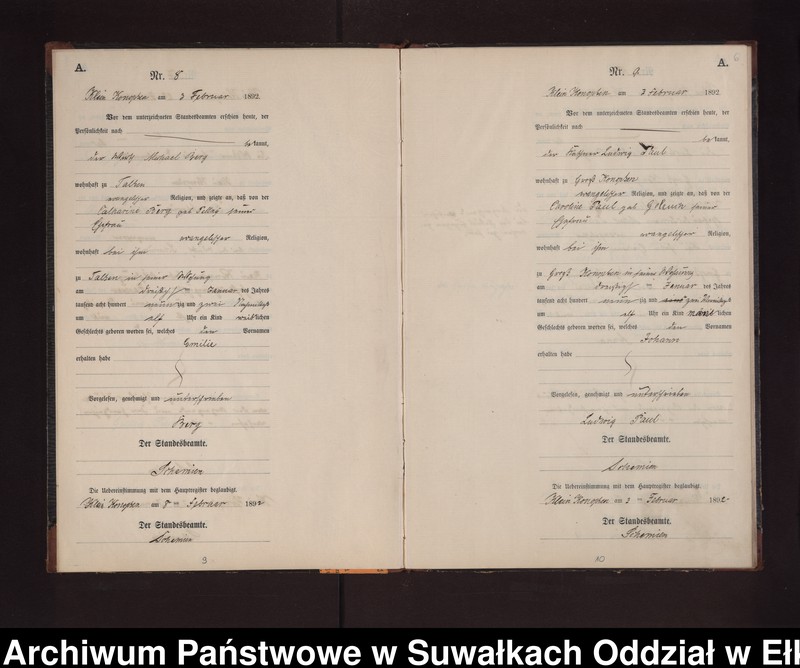 A.
Nr. 8
Klein Konopken am 3 Februar 1892
Vor dem unterzeichneten Standesbeamten erschien heute, der
Persönlichkeit nach
be kannt,
der Michael Berg
wohnhaft zu Talken
evangelischer Religion, und zeigte an, daß von der
Catharine Berg geb. seiner
Ehefrau
evangelischer Religion,
wohnhaft bei ihm
zu Talken in seiner Wohnung
am Januar des Jahres
tausend acht hundert neun zig und zwei
um elf Uhr ein Kind weib lichen
Geschlechts geboren worden sei, welches den Vornamen
Emilie
erhalten habe
Vorgelesen, genehmigt und unterschrieben
Berg
Der Standesbeamte.
Schemien
Die Uebereinstimmung mit dem Hauptregister beglaubigt.
Klein Konopken am Februar 1892
Der Standesbeamte.
Schemien
9
A.
6
Nr. 9
Klein Konopken am 3 Februar 1892
Vor dem unterzeichneten Standesbeamten erschien heute, der
Persönlichkeit nach
be kannt,
der Ludwig Paul
wohnhaft zu Konopken
evangelischer Religion, und zeigte an, daß von der
Paul geb. seiner
Ehefrau
evangelischer Religion,
wohnhaft bei ihm
zu Konopken in seiner Wohnung
am Januar des Jahres
tausend acht hundert neun zig und
um elf Uhr ein Kind männ lichen
Geschlechts geboren worden sei, welches den Vornamen
Johann
erhalten habe
Vorgelesen, genehmigt und unterschrieben
Ludwig Paul
Der Standesbeamte.
Schemien
Die Uebereinstimmung mit dem Hauptregister beglaubigt.
Klein Konopken am 3 Februar 1892
Der Standesbeamte.
Schemien
10
Archiwum Państwowe w Suwałkach Oddział w Eł